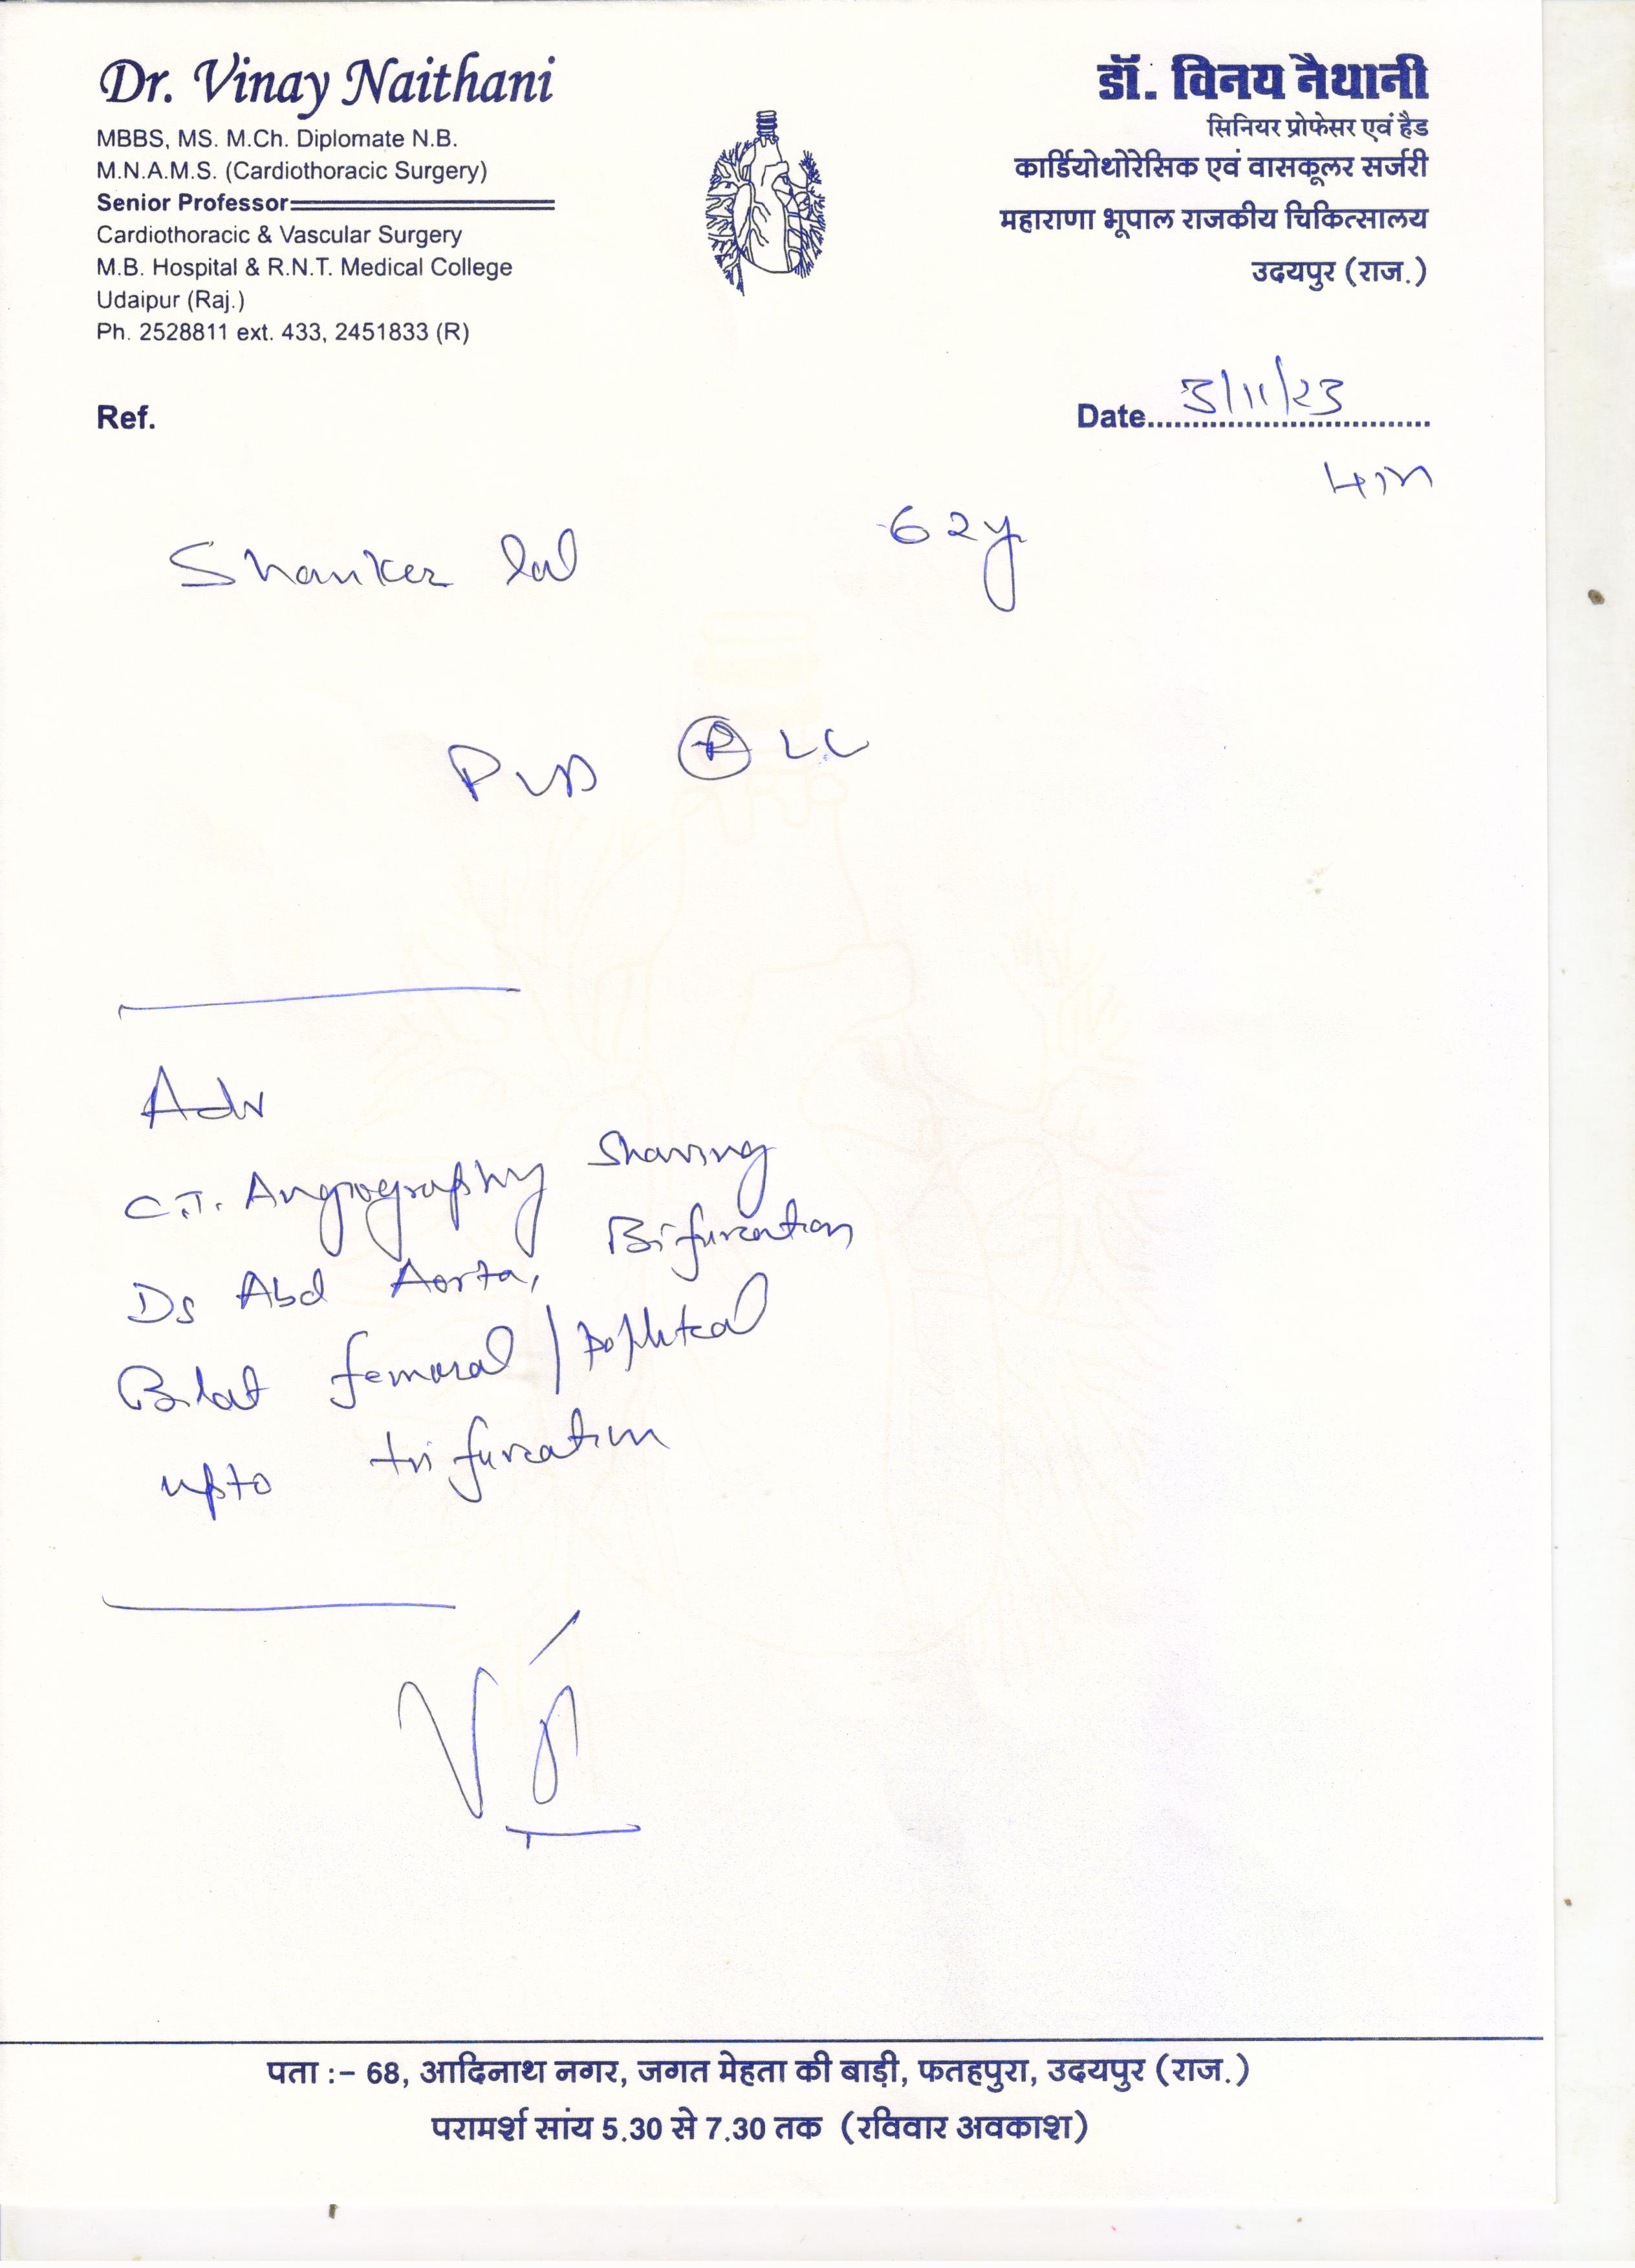 Dr. Vinay Naithani
MBBS, MS. M.Ch. Diplomate N.B.
M.N.A.M.S. (Cardiothoracic Surgery)
Senior Professor
Cardiothoracic & Vascular Surgery
M.B. Hospital & R.N.T. Medical College
Udaipur (Raj.)
Ph. 2528811 ext. 433, 2451833 (R)
डॉ. विनय नैथानी
सिनियर प्रोफेसर एवं हैड
कार्डियोथोरेसिक एवं वासकूलर सर्जरी
महाराणा भूपाल राजकीय चिकित्सालय
उदयपुर (राज.)
Ref.
Date 3/11/23
Shanker lal 62y
PVD R LL
Adv
C.T. Angiography Showing
Ds Abd Aorta, Bifurcation
Bilat femoral / popliteal
upto trifurcation
पता :- 68, आदिनाथ नगर, जगत मेहता की बाड़ी, फतहपुरा, उदयपुर (राज.)
परामर्श सांय 5.30 से 7.30 तक (रविवार अवकाश)